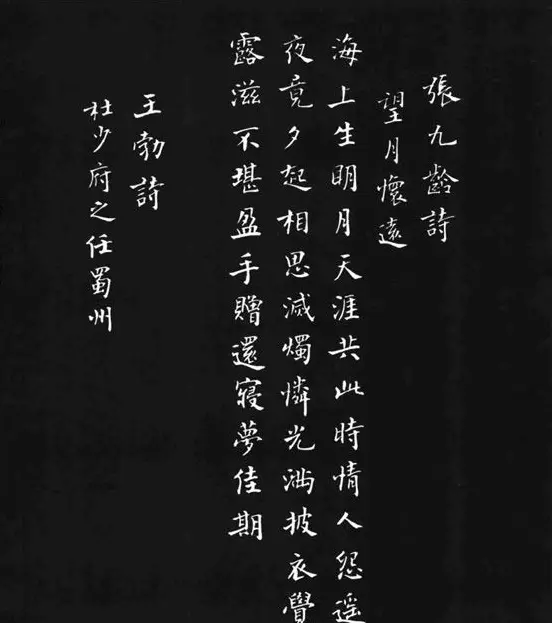 張九齡詩
望月懷遠
海上生明月天涯共此時情人怨遥
夜竟夕起相思滅燭憐光滿披衣覺
露滋不堪盈手贈還寢夢佳期
王勃詩
杜少府之任蜀州